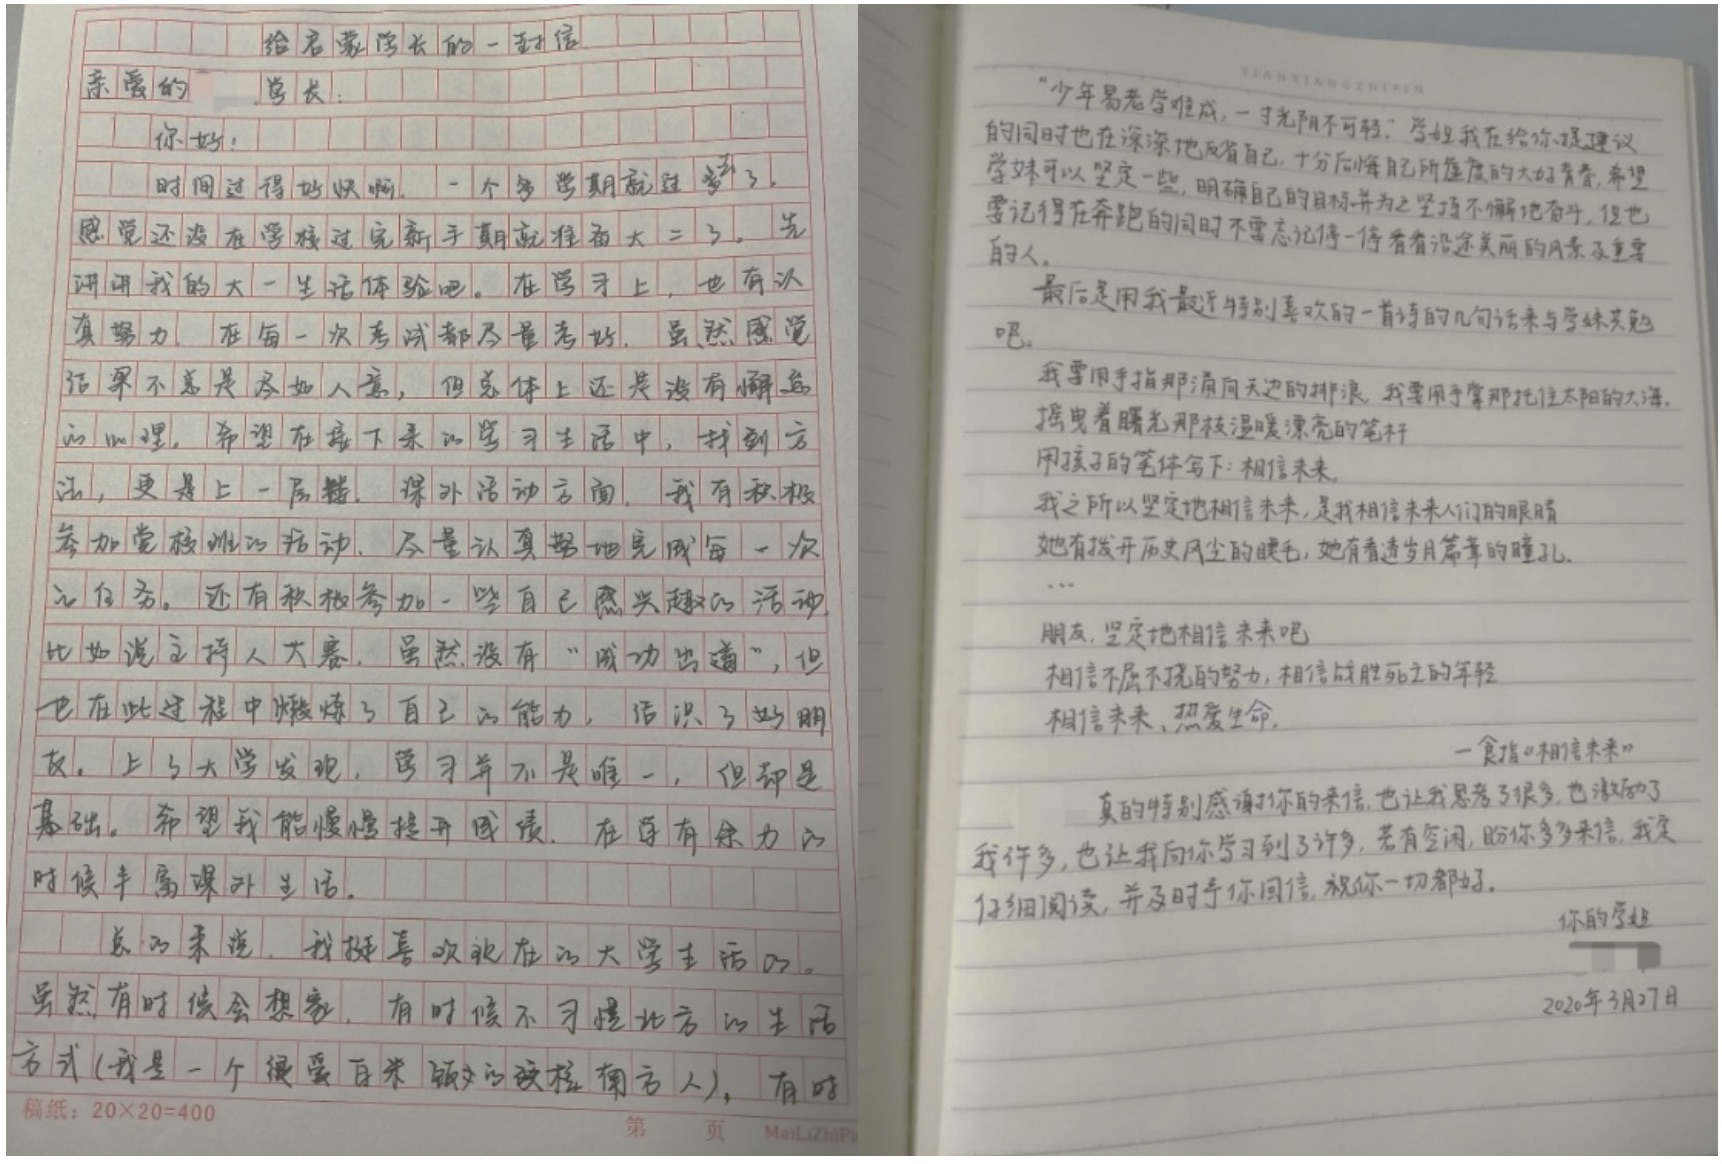 给启蒙学长的一封信
亲爱的 学长：
你好！
时间过得好快啊，一个多学期就过完了。
感觉还没在学校过完新手期就准备大二了。先
讲讲我的大一生活体验吧。在学习上，也有认
真努力，在每一次考试都尽量考好，虽然感觉
结果不总是尽如人意，但总体上还是没有懈怠
的心理。希望在接下来的学习生活中，找到方
法，更是上一层楼。课外活动方面，我有积极
参加党校班的活动，尽量认真努地完成每一次
的任务。还有积极参加一些自己感兴趣的活动，
比如说主持人大赛，虽然没有“成功出道”，但
也在此过程中锻炼了自己的能力，结识了好朋
友。上了大学发现，学习并不是唯一，但却是
基础。希望我能慢慢提升成绩，在学有余力的
时候丰富课外生活。
总的来说，我挺喜欢现在的大学生活的。
虽然有时候会想家，有时候不习惯北方的生活
方式（我是一个很爱白米饭的硬核南方人），有时
稿纸：20×20=400
第 页 MeiLiZhiPin
TIANXIANGZHIPIN
“少年易老学难成，一寸光阴不可轻。”学姐我在给你提建议
的同时也在深深地反省自己，十分后悔自己所虚度的大好青春，希望
学妹可以坚定一些，明确自己的目标并为之坚持不懈地奋斗，但也
要记得在奔跑的同时不要忘记停一停看看沿途美丽的风景及重要
的人。
最后是用我最近特别喜欢的一首诗的几句话来与学妹共勉
吧。
我要用手指那涌向天边的排浪，我要用手掌那托住太阳的大海，
摇曳着曙光那枝温暖漂亮的笔杆
用孩子的笔体写下：相信未来。
我之所以坚定地相信未来，是我相信未来人们的眼睛
她有拨开历史风尘的睫毛，她有看透岁月篇章的瞳孔。
…
朋友，坚定地相信未来吧
相信不屈不挠的努力，相信战胜死亡的年轻
相信未来、热爱生命。
—食指《相信未来》
真的特别感谢你的来信，也让我思考了很多，也激励了
我许多，也让我向你学习到了许多，若有空闲，盼你多多来信，我定
仔细阅读，并及时予你回信，祝你一切都好。
你的学姐
2020年3月27日